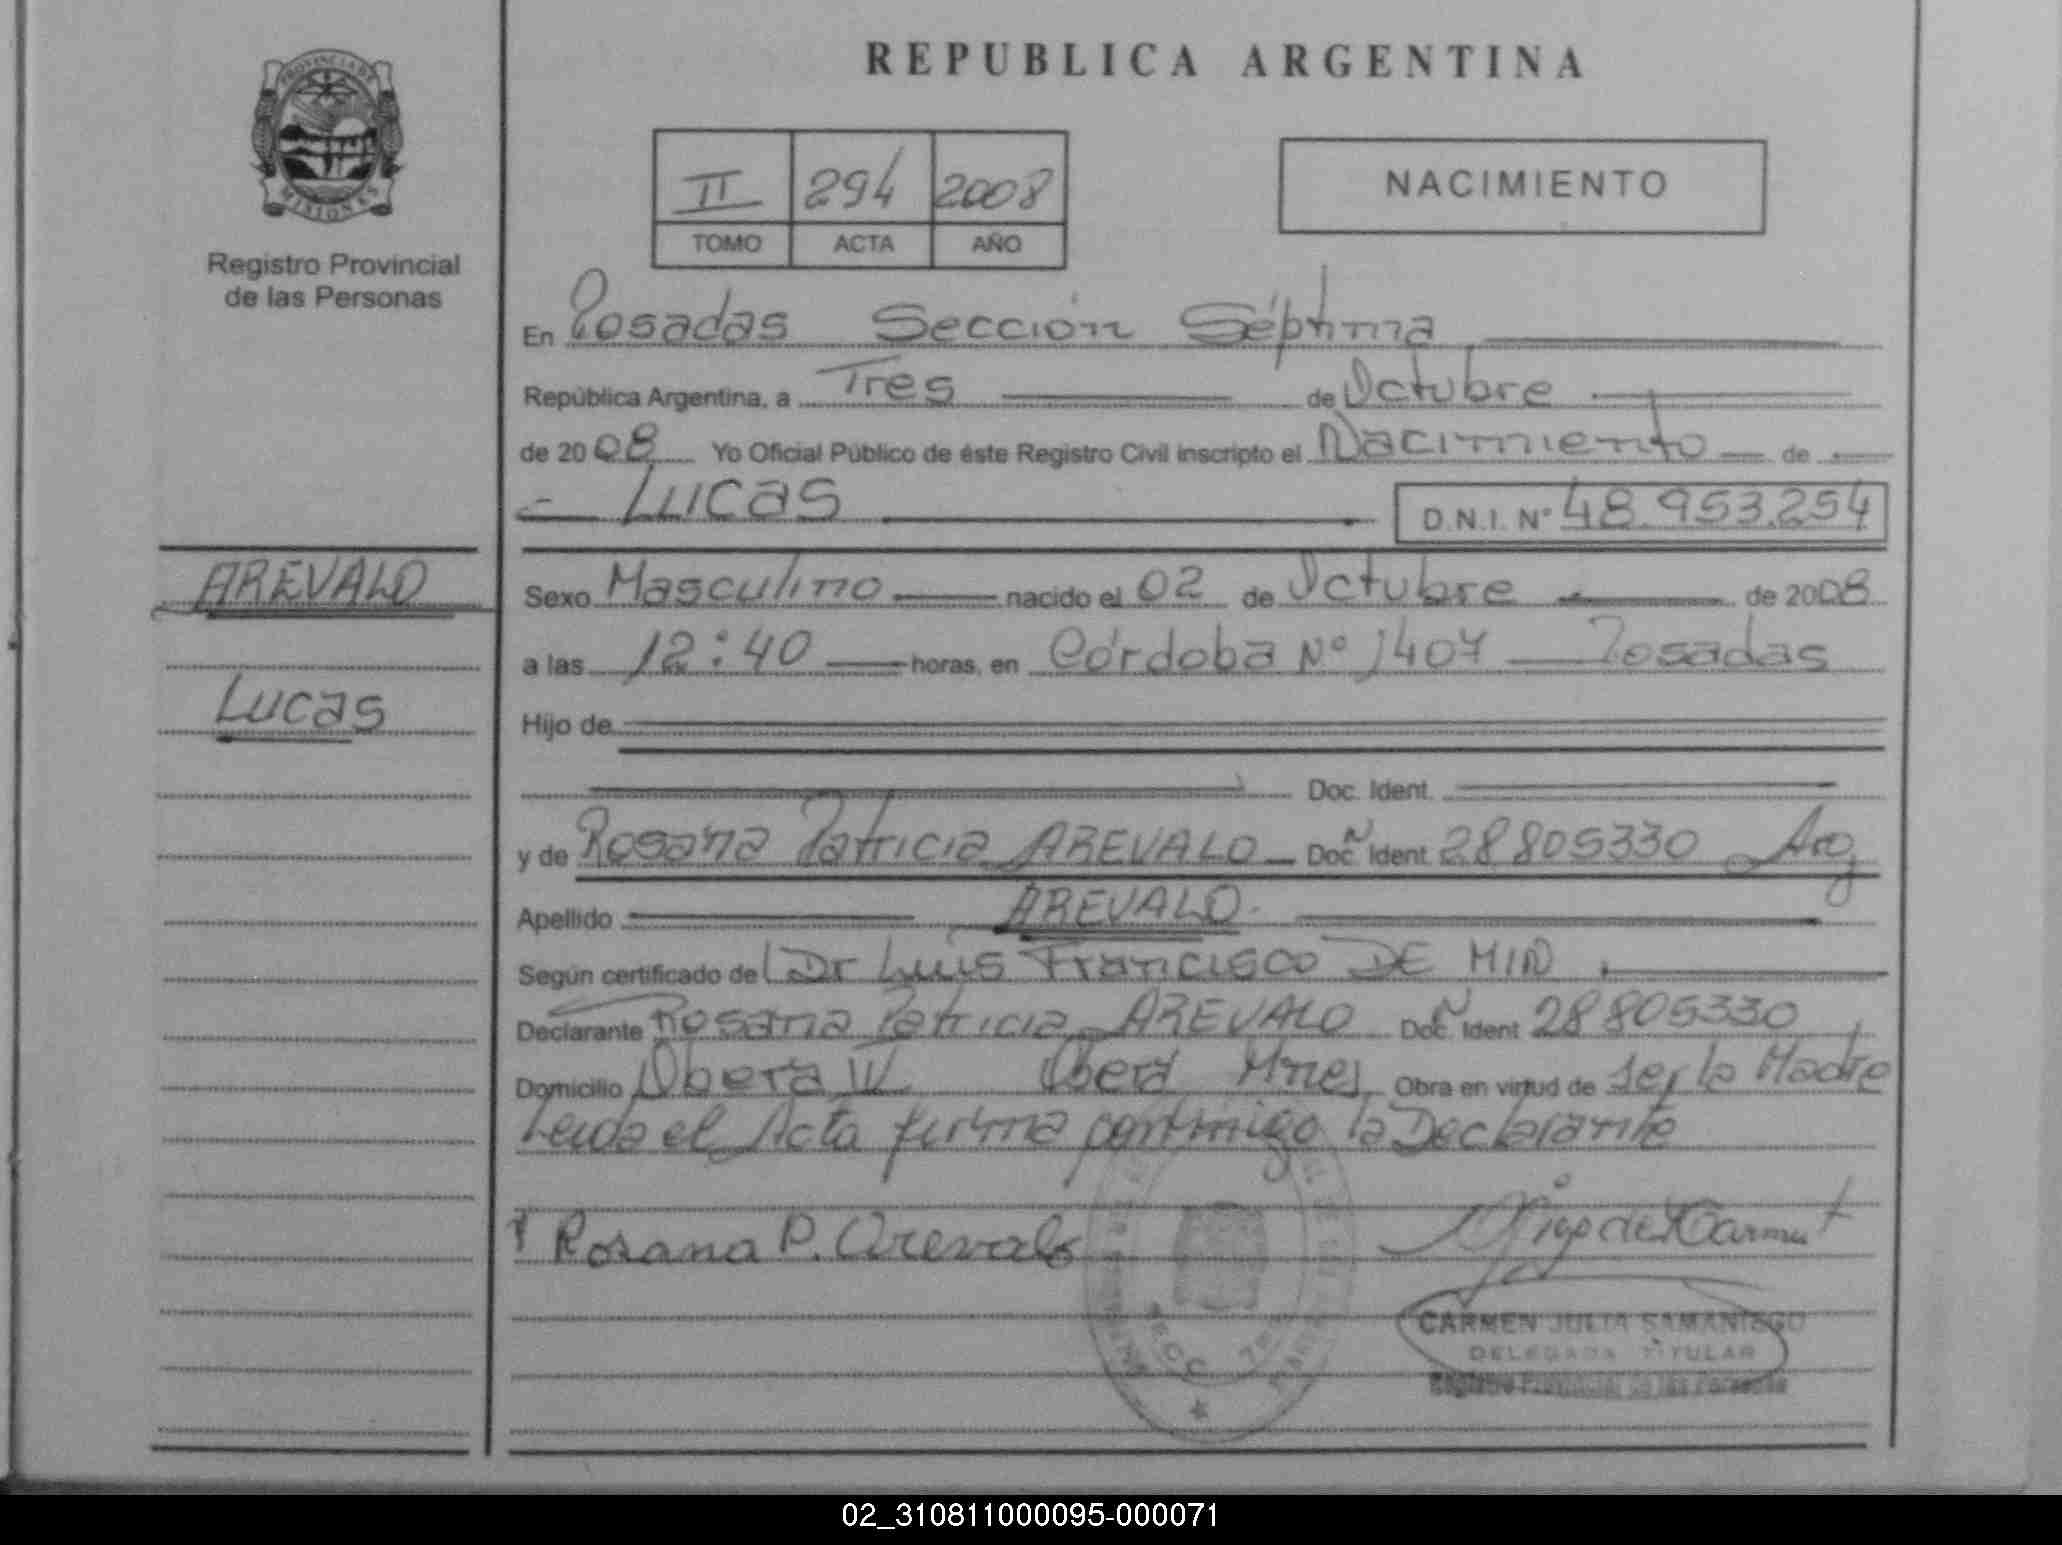 PROVINCIA DE
MISIONES
Registro Provincial
de las Personas
AREVALO
Lucas
REPUBLICA ARGENTINA
II 294 2008
TOMO ACTA AÑO
NACIMIENTO
En Posadas Sección Séptima
República Argentina, a Tres de Octubre
de 2008 Yo Oficial Público de éste Registro Civil inscripto el Nacimiento de
Lucas D.N.I. Nº 48.953.254
Sexo Masculino nacido el 02 de Octubre de 2008
a las 12:40 horas, en Córdoba Nº 1407 Posadas
Hijo de
Doc. Ident.
y de Rosana Patricia AREVALO Doc. Ident 28805330 Arg
Apellido AREVALO
Según certificado de Dr Luis Francisco DE MIN
Declarante Rosana Patricia AREVALO Doc. Ident 28805330
Domicilio Obera IV Oberá Mnes Obra en virtud de ser la Madre
Leida el Acta firma conmigo la Declarante
Rosana P. Arevalo
SECC. 7ma
CARMEN JULIA SAMANIEGO
DELEGADA TITULAR
Registro Provincial de las Personas
02_310811000095-000071